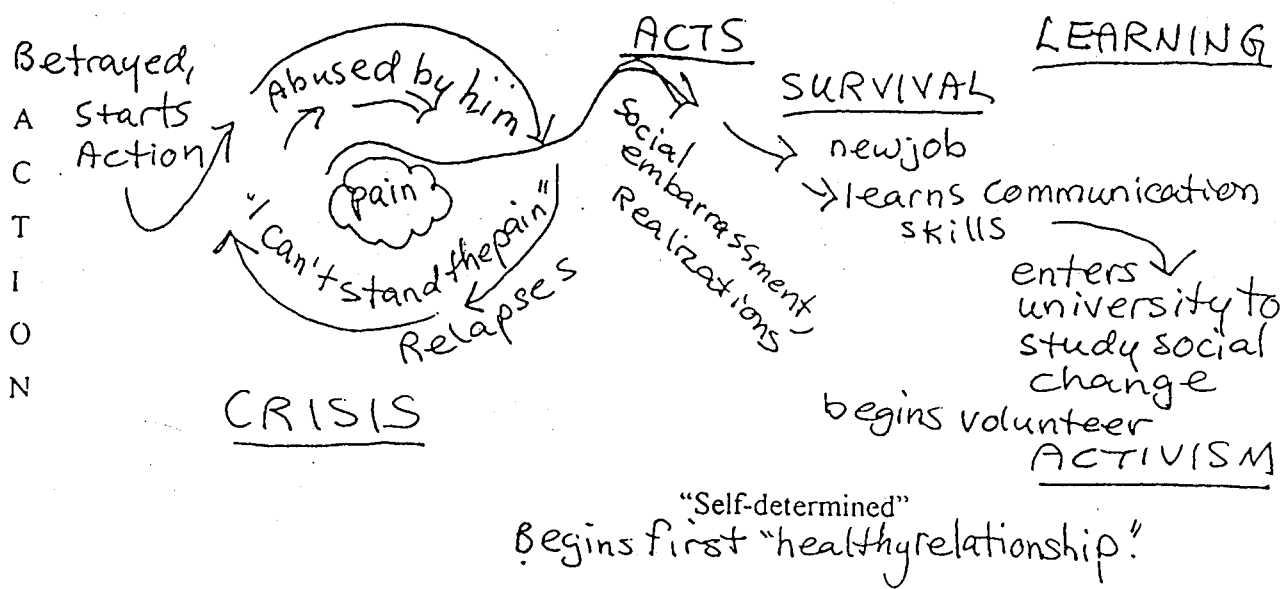 ACTION
Betrayed,
starts
Action
Abused by him
pain
"I can't stand the pain"
Relapses
CRISIS
ACTS
Social
embarrassment,
Realizations
SURVIVAL
new job
learns communication
skills
LEARNING
enters
university to
study social
change
begins volunteer
ACTIVISM
"Self-determined"
Begins first "healthy relationship."